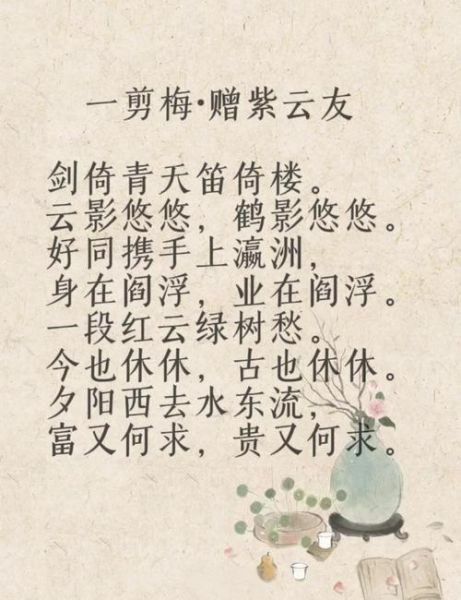 一剪梅·赠紫云友
剑倚青天笛倚楼。
云影悠悠，鹤影悠悠。
好同携手上瀛洲，
身在阎浮，业在阎浮。
一段红云绿树愁。
今也休休，古也休休。
夕阳西去水东流，
富又何求，贵又何求。